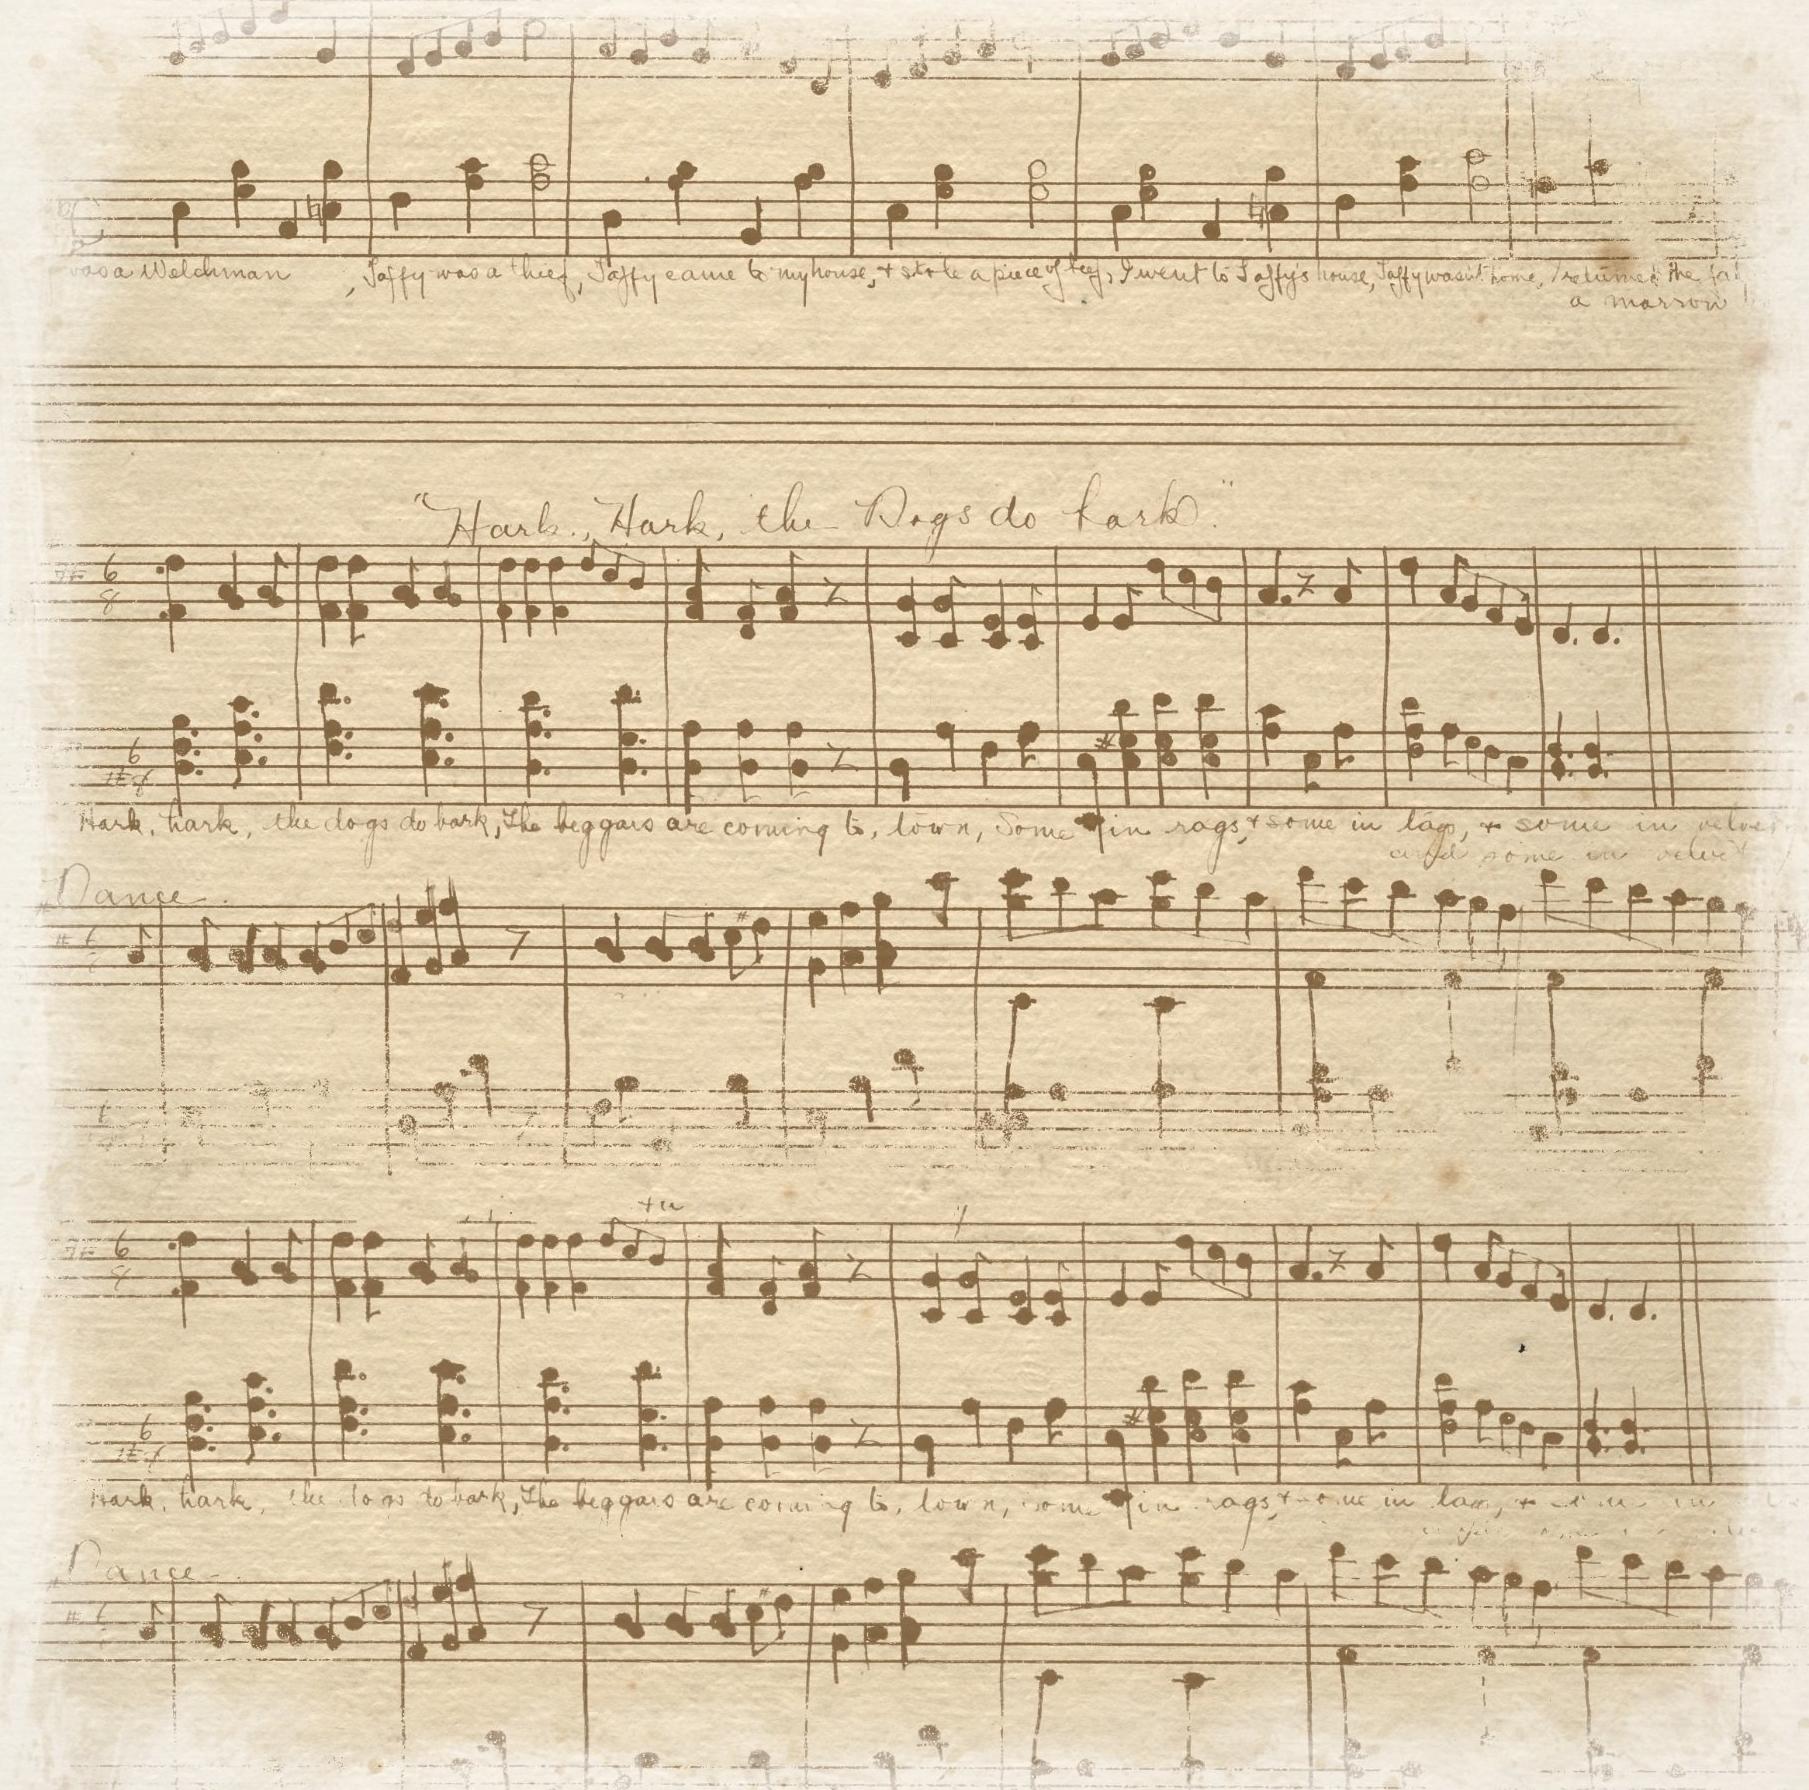 was a Welchman, Taffy was a thief, Taffy came to my house, + stole a piece of beef, I went to Taffy's house, Taffy wasn't home, I returned the
a marrow
"Hark, Hark, the Dogs do bark".
6
8
6
8
Hark, hark, the dogs do bark, The beggars are coming to, town, Some in rags, + some in tags, + some in velvet
and some in velvet
Dance.
6
6
8
6
Hark, hark, the do bark, The beggars are coming to, town, in rags + in + in
Dance.